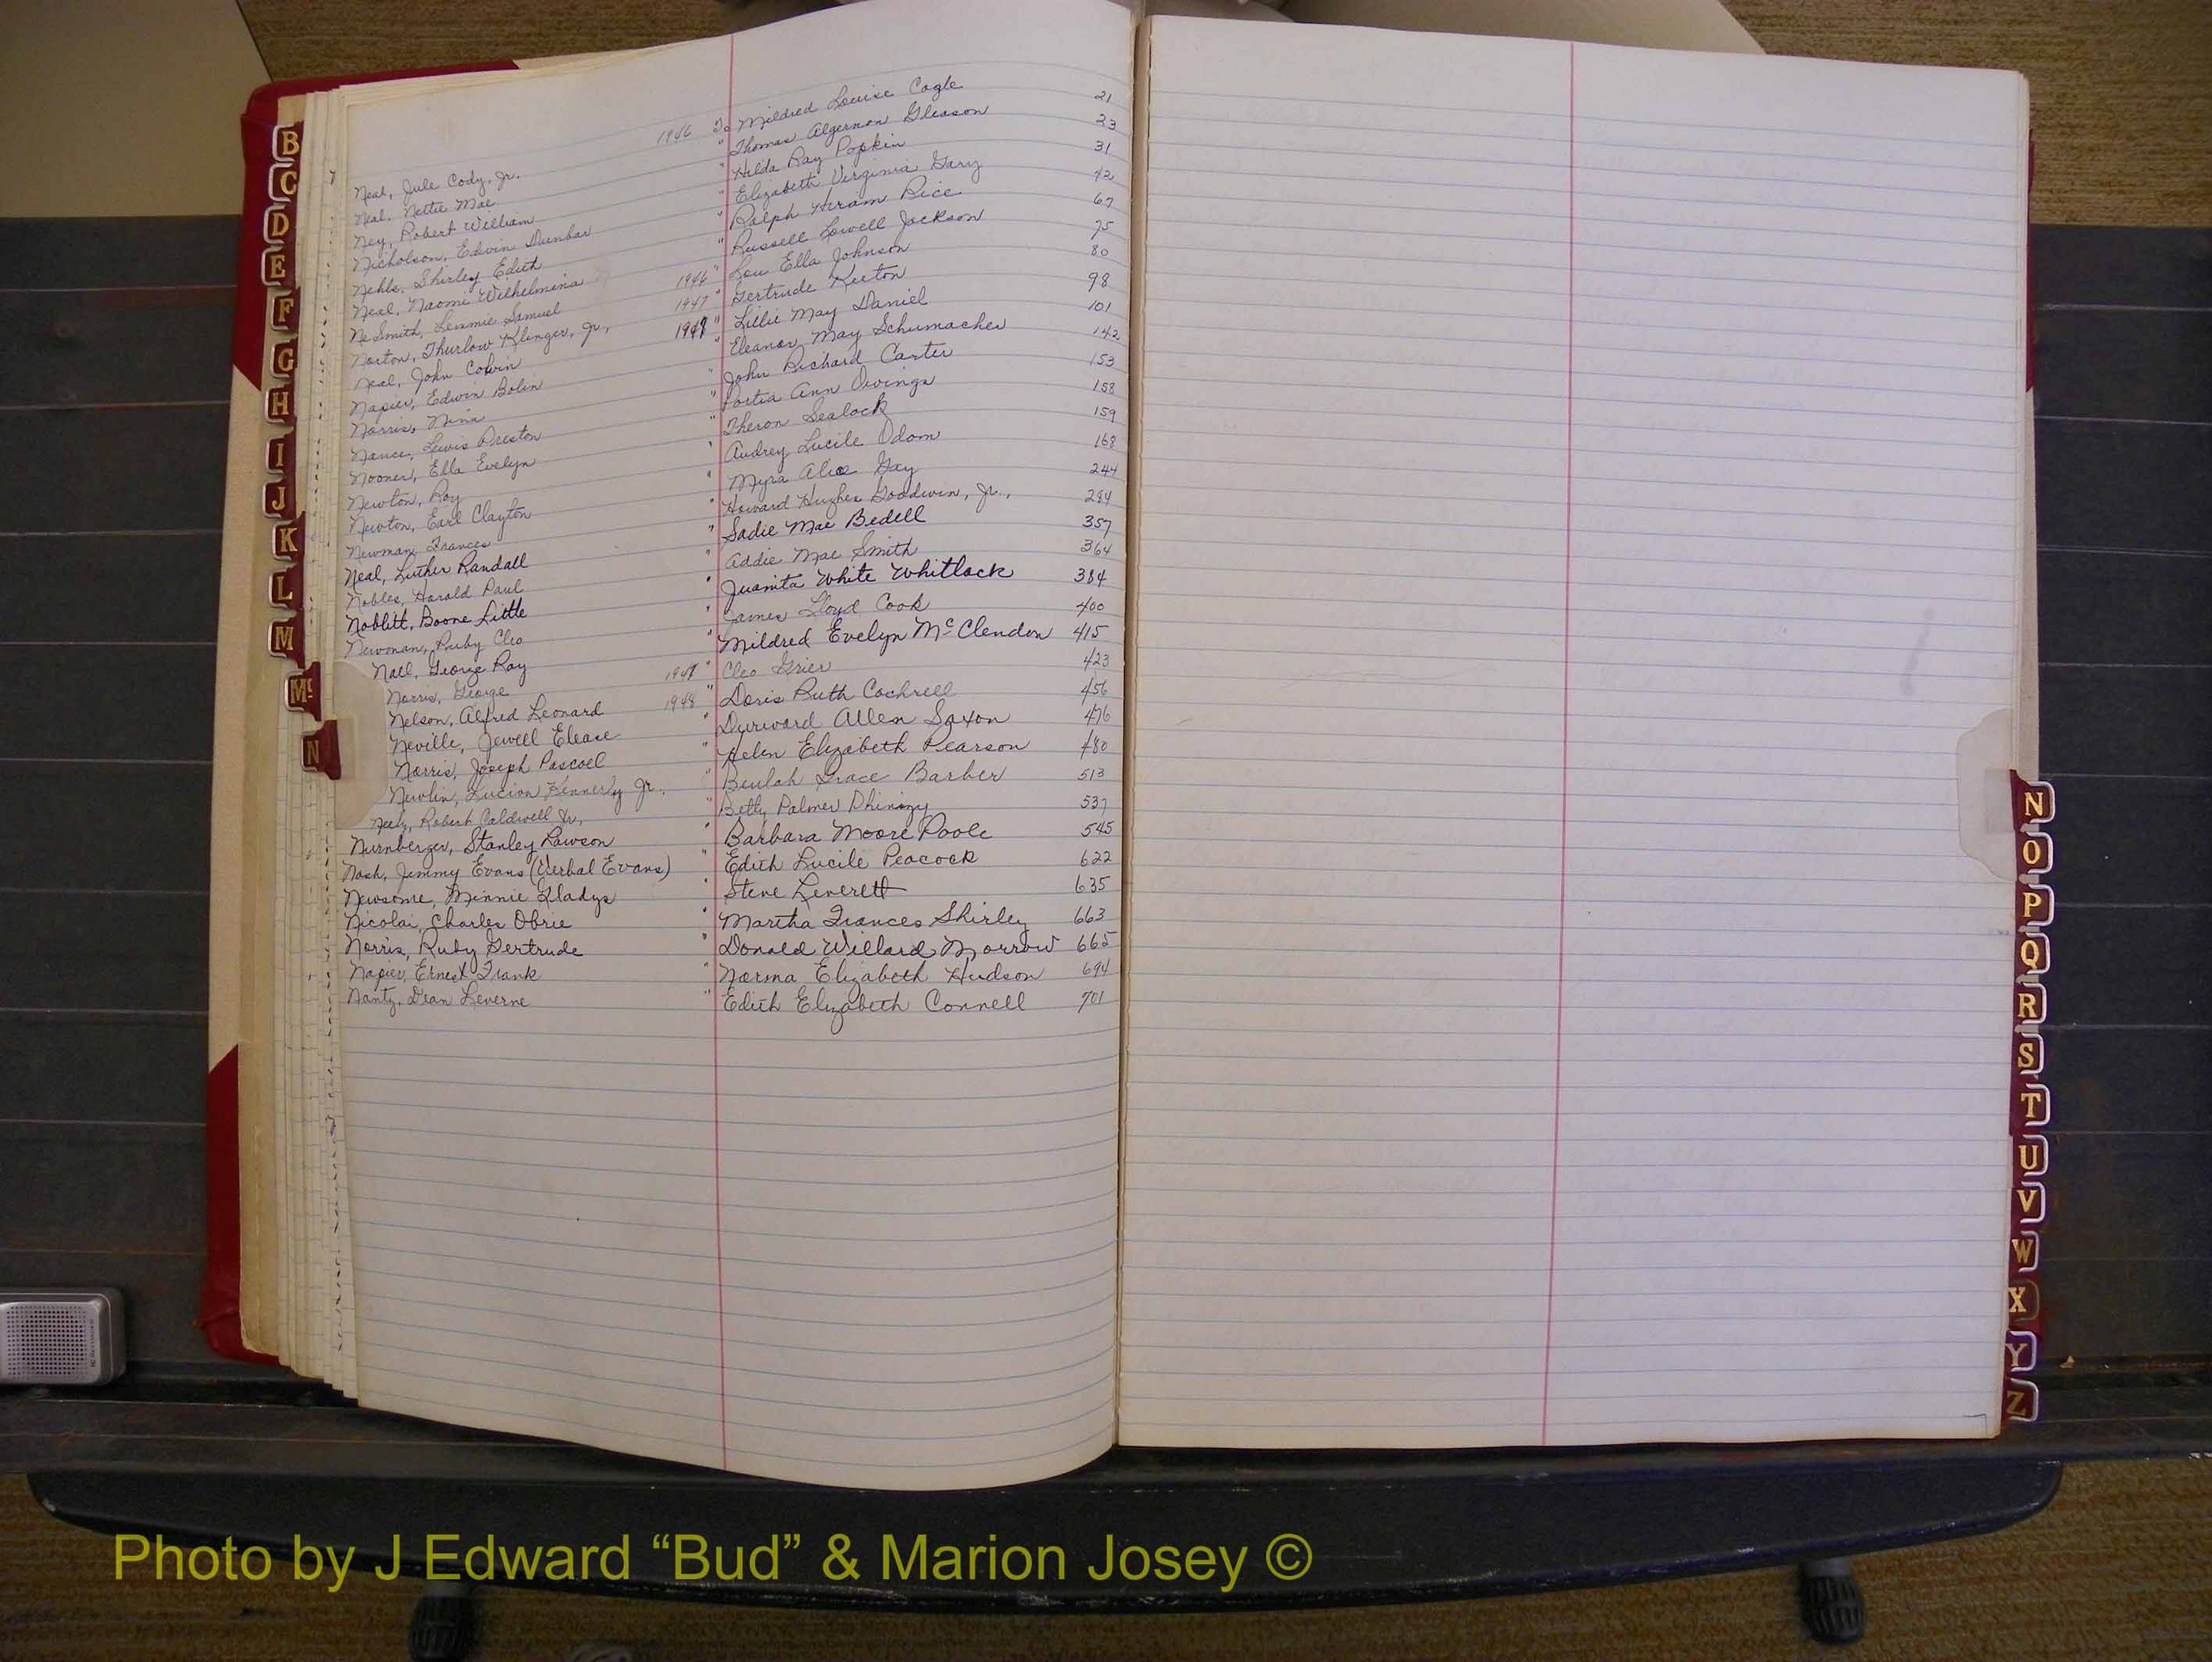 Neal, Jule Cody, Jr. 1946 To Mildred Louise Cagle 21
Neal, Nettie Mae " Thomas Algernon Gleason 23
Ney, Robert William " Hilda Ray Popkin 31
Nicholson, Edwin Dunbar " Elizabeth Virginia Gary 42
Nehls, Shirley Edith " Ralph Hiram Rice 67
Neal, Naomi Wilhelmina " Russell Lowell Jackson 75
NeSmith, Lemmie Samuel 1946 " Lou Ella Johnson 80
Norton, Thurlow Klinger, Jr., 1947 " Gertrude Keeton 98
Neal, John Colvin 1947 " Lillie May Daniel 101
Napier, Edwin Bolin " Eleanor May Schumacher 142
Norris, Nina " John Richard Carter 153
Nance, Lewis Preston " Portia Ann Owings 158
Nooner, Ella Evelyn " Theron Sealock 159
Newton, Roy " Audrey Lucile Odom 168
Newton, Earl Clayton " Myra Alice Gay 244
Newman, Frances " Howard Hughes Goodwin, Jr., 294
Neal, Luther Randall " Sadie Mae Bedell 357
Nobles, Harold Paul " Addie Mae Smith 364
Noblitt, Boone Little " Juanita White Whitlock 384
Newman, Ruby Cleo " James Lloyd Cook 400
Nall, George Ray " Mildred Evelyn McClendon 415
Norris, George 1947 " Cleo Grier 423
Nelson, Alfred Leonard 1948 " Doris Ruth Cochrell 456
Neville, Jewell Elease " Durward Allen Saxon 476
Norris, Joseph Pascoel " Helen Elizabeth Pearson 480
Newlin, Lucion Kennerly Jr., " Beulah Grace Barber 513
Neely, Robert Caldwell Jr., " Betty Palmer Phinizy 537
Nurnberger, Stanley Lawson " Barbara Moore Poole 545
Nash, Jimmy Evans (Verbal Evans) " Edith Lucile Peacock 622
Newsome, Minnie Gladys " Steve Leverett 635
Nicolai, Charles Obrie " Martha Frances Shirley 663
Norris, Ruby Gertrude " Donald Willard Morrow 665
Napier, Ernest Frank " Norma Elizabeth Hudson 694
Nantz, Dean Leverne " Edith Elizabeth Connell 701
B
C
D
E
F
G
H
I
J
K
L
M
Mc
N
N
O
P
Q
R
S
T
U
V
W
X
Y
Z
Photo by J Edward “Bud” & Marion Josey ©